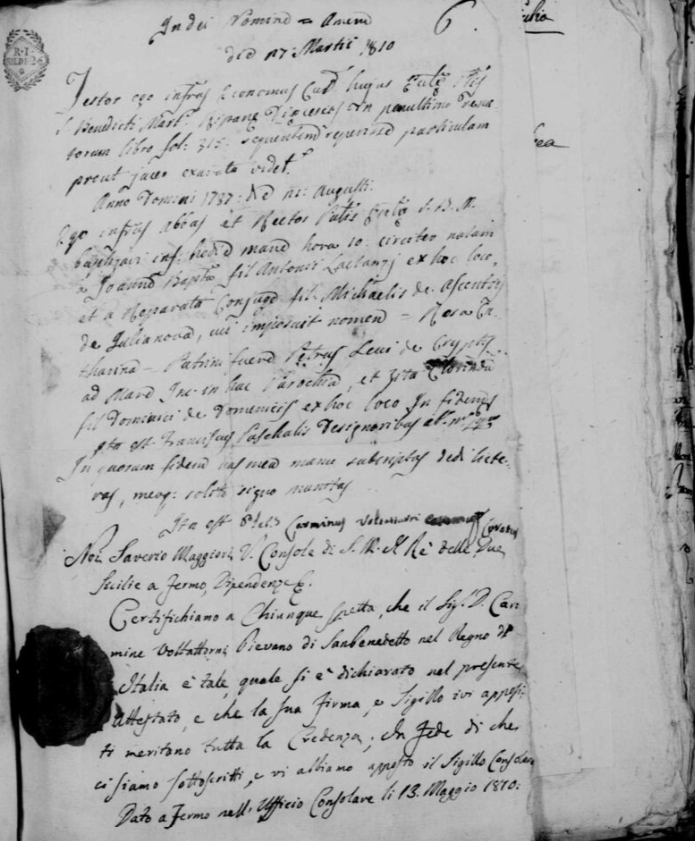 In dei Nomine = Amen
6
die 17: Martii 1810
Testor ego infrus Economus Cud. hujus
S. Benedicti Mart. in penultimo
torum libro fol: 315: sequentem reperisse particulam
prout jacet exarata videt.
Anno Domini 1787: die Augusti:
Ego infrus Abbas et Rector S. B. M.
baptizavi inf. hodie mane hora 10: circiter natam
a Joanne Bapta fil Antonii Latanzj ex hoc loco,
et a Reparata Conjuge fil: Michaelis de Ascentiis
de Julianova, cui imposuit nomen = Rosa Ca
tharina = Patrini fuere Petrus Levi de Cryptis
ad Mare Inc. in hac Parochia, et Zita Clorinda
fil Dominici de Domenicis ex hoc loco In fidem
Ita est Franciscus Paschalis
In quorum fidem has mea manu subscriptas dedi litte-
ras, meoq: solito signo munitas
Ita est Carminus Voltattorni Curatus
Noi Saverio Maggiori V. Console di S. M. Il Rè delle Due
Sicilie a Fermo, Dipendenze &.
Certifichiamo a Chiunque spetta, che il Sigr. D. Car
mine Voltattorni Pievano di Sanbenedetto nel Regno d'
Italia è tale, quale si è dichiarato nel presente
Attestato, e che la sua Firma, e Sigillo ivi apposi
ti meritano tutta la Credenza. In Fede di che
ci siamo sottoscritti, e vi abbiamo apposto il Sigillo Consolare
Dato a Fermo nell' Ufficio Consolare li 13. Maggio 1810: